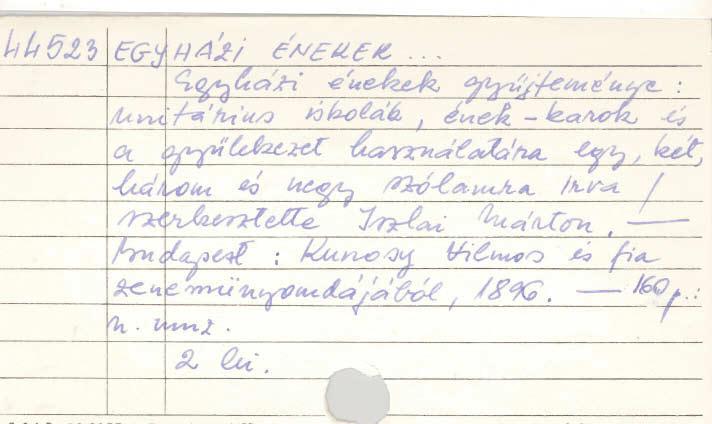 44523 EGYHÁZI ÉNEKEK ...
Egyházi énekek gyüjteménye :
unitárius iskolák, ének-karok és
a gyülekezet használatára egy, két,
három és negy szólamra irva /
szerkesztette Iszlai Márton. —
Budapest : Kunosy Vilmos és fia
zenemünyomdájából, 1896. — 160 p. :
n. muz.
2 lei.